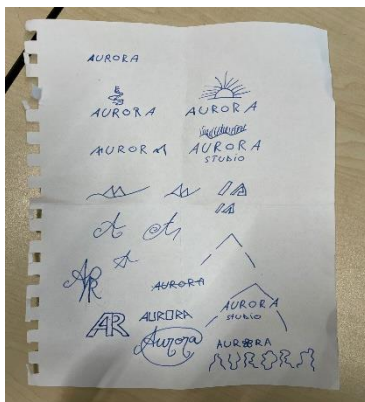 AURORA
AURORA
AURORA
AURORA
AURORA
STUDIO
A
A
A
AR
AURORA
AURORA
STUDIO
AR
AURORA
Aurora
AURORA